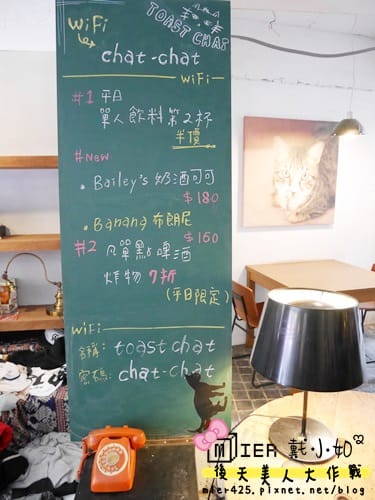 WiFi
TOAST CHAT
chat-chat
WiFi
#1 平日
單人飲料第2杯
半價
#New
・Bailey's 奶酒可可
$180
・Banana 布朗尼
$160
#2 凡單點啤酒
炸物7折
(平日限定)
WiFi
名稱: toast chat
密碼: chat-chat
MIER 戴小如
後天美人大作戰
mier425.pixnet.net/blog